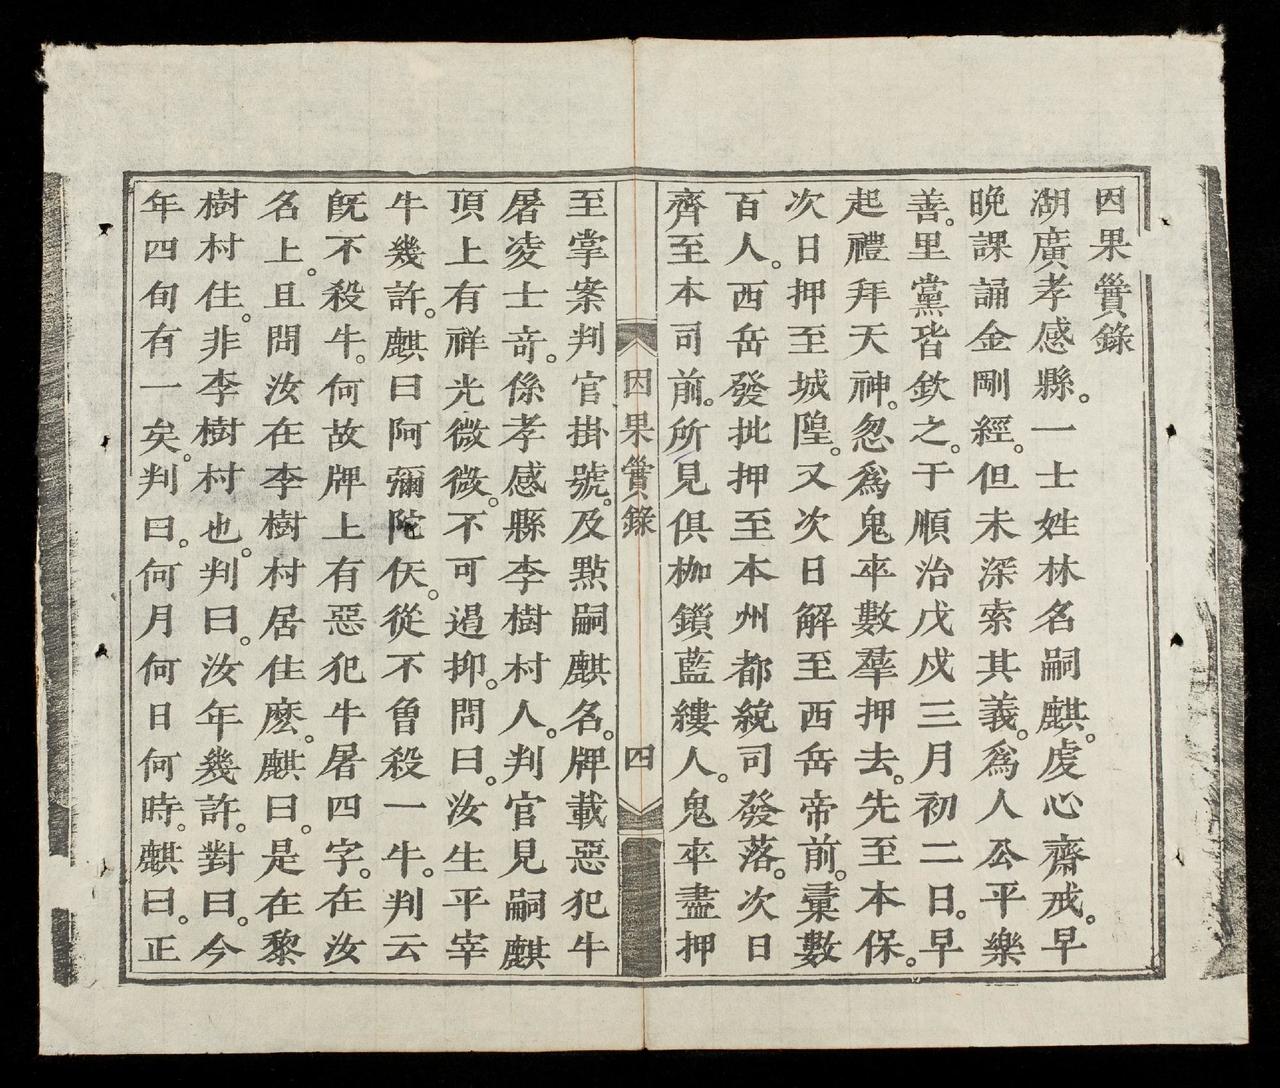 因果實錄
湖廣孝感縣。一士姓林名嗣麒。虔心齋戒。早
晚課誦金剛經。但未深索其義。爲人公平樂
善。里黨皆欽之。于順治戊戌三月初二日。早
起禮拜天神。忽爲鬼卒數羣押去。先至本保。
次日押至城隍。又次日解至西岳帝前。彙數
百人。西岳發批押至本州都統司發落。次日
齊至本司前。所見俱枷鎖藍縷人。鬼卒盡押
因果實錄
四
至掌案判官掛號。及點嗣麒名。牌載惡犯牛
屠凌士奇。係孝感縣李樹村人。判官見嗣麒
頂上有祥光微微。不可遏抑。問曰。汝生平宰
牛幾許。麒曰阿彌陀仸。從不曾殺一牛。判云
旣不殺牛。何故牌上有惡犯牛屠四字。在汝
名上。且問汝在李樹村居住麼。麒曰。是在黎
樹村住。非李樹村也。判曰。汝年幾許。對曰。今
年四旬有一矣。判曰。何月何日何時。麒曰。正